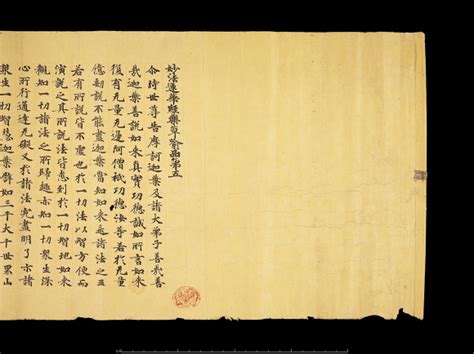 妙法蓮華經藥草喻品第五
尒時世尊告摩訶迦葉及諸大弟子善哉善
哉迦葉善說如來真實功德誠如所言如來
復有无量无邊阿僧祇功德汝等若於无量
億劫說不能盡迦葉當知如來是諸法之王
若有所說皆不虛也於一切法以智方便而
演說之其所說法皆悉到於一切智地如來
觀知一切諸法之所歸趣亦知一切眾生深
心所行通達无礙又於諸法究盡明了示諸
眾生一切智慧迦葉譬如三千大千世界山